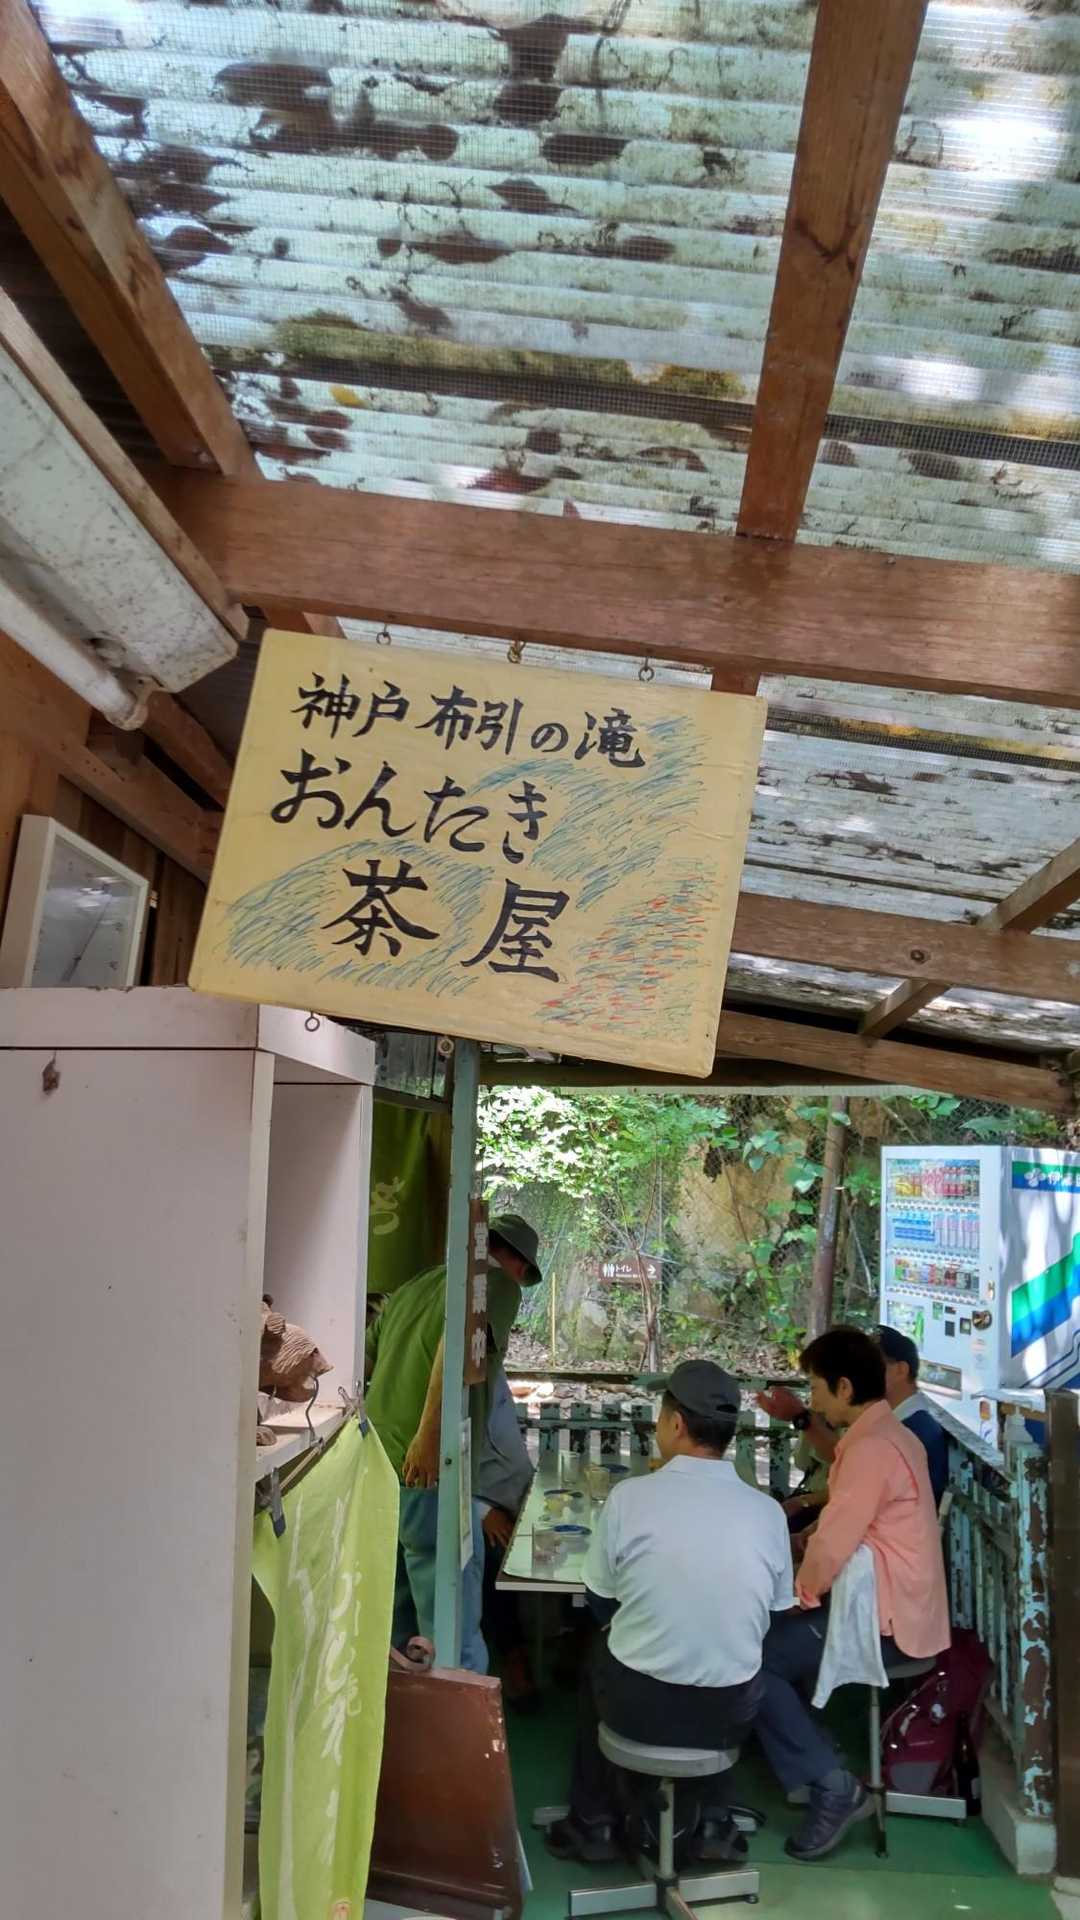 神戸 布引の滝
おんたき
茶屋
営業中
トイレ